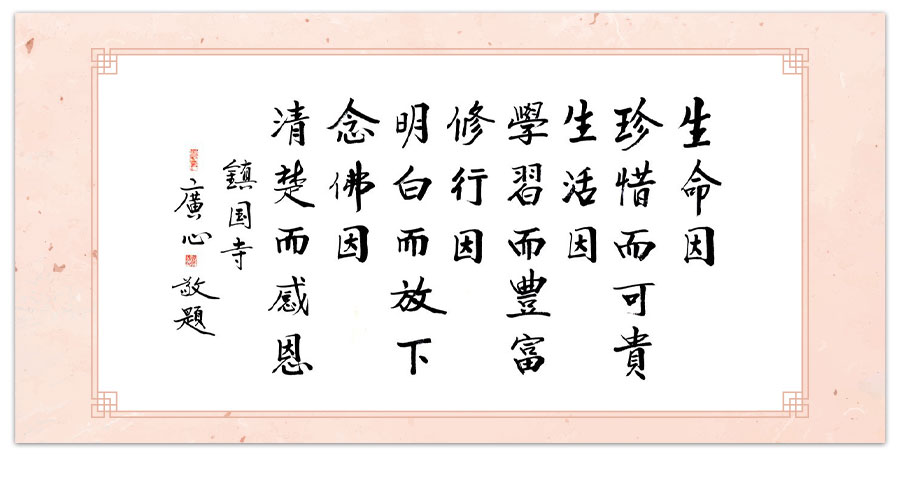 生命因
珍惜而可貴
生活因
學習而豐富
修行因
明白而放下
念佛因
清楚而感恩
鎮国寺
廣心敬題